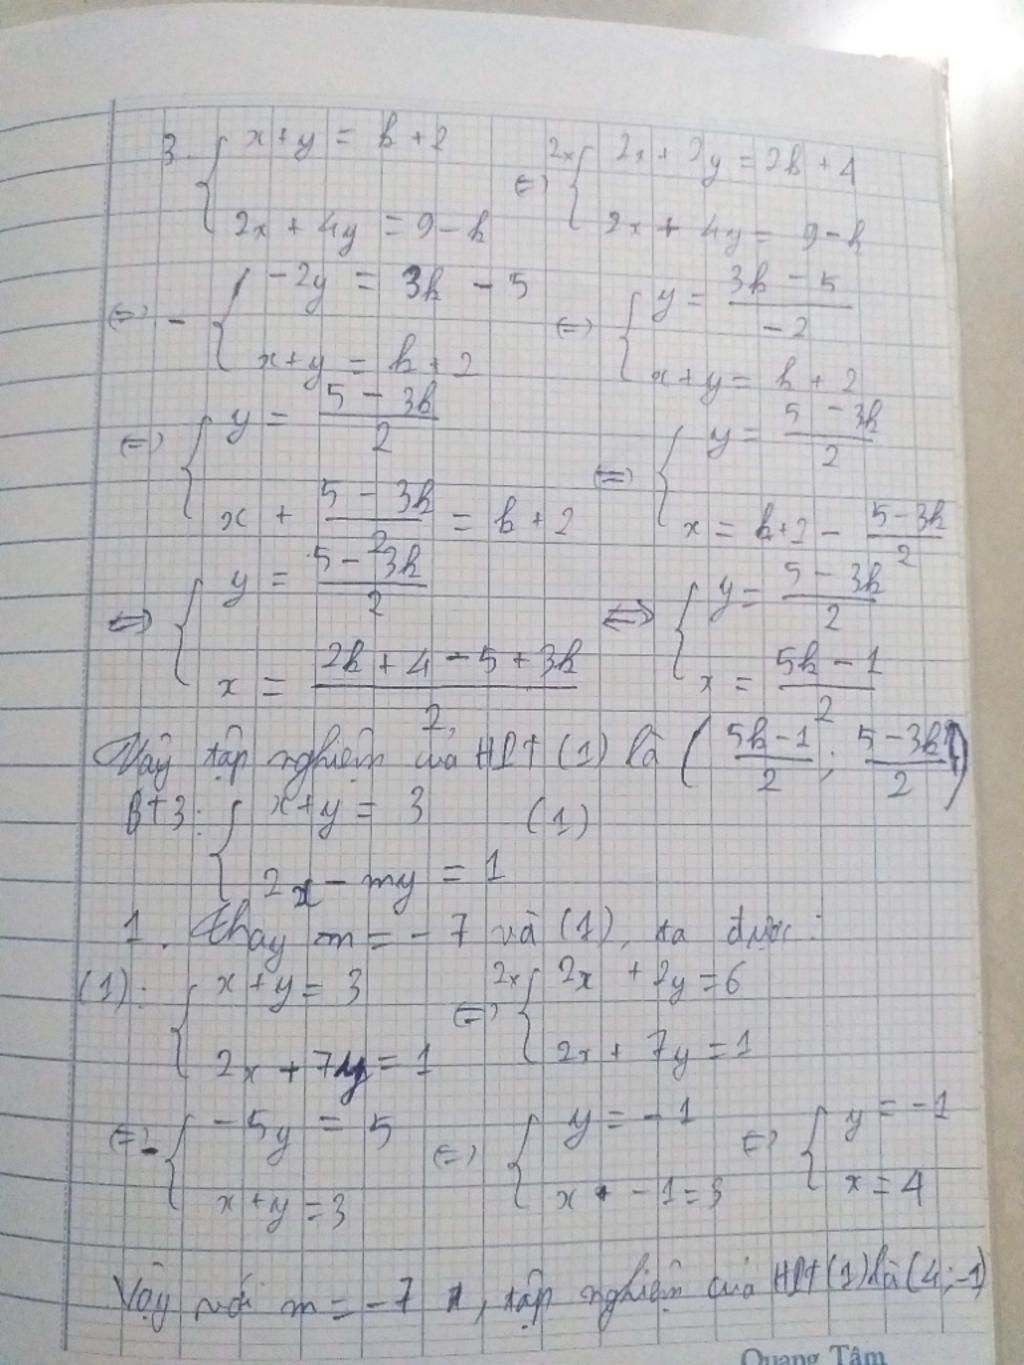 3. { x + y = k + 2 (=) 2x { 2x + 2y = 2k + 4
2x + 4y = 9 - k 2x + 4y = 9 - k
(=) - { -2y = 3k - 5 (=) { y = (3k - 5)/(-2)
x + y = k + 2 x + y = k + 2
(=) { y = (5 - 3k)/2 (=) { y = (5 - 3k)/2
x + (5 - 3k)/2 = k + 2 x = k + 2 - (5 - 3k)/2
<=> { y = (5 - 3k)/2 <=> { y = (5 - 3k)/2
x = (2k + 4 - 5 + 3k)/2 x = (5k - 1)/2
Vậy tập nghiệm của HPT (1) là ( (5k - 1)/2 ; (5 - 3k)/2 )
BT3: { x + y = 3 (1)
2x - my = 1
1. Thay m = -7 và (1), ta được:
(1): { x + y = 3 (=) 2x { 2x + 2y = 6
2x + 7y = 1 2x + 7y = 1
(=) - { -5y = 5 (=) { y = -1 (=) { y = -1
x + y = 3 x + -1 = 3 x = 4
Vậy với m = -7, tập nghiệm của HPT (1) là (4; -1)
Quang Tâm